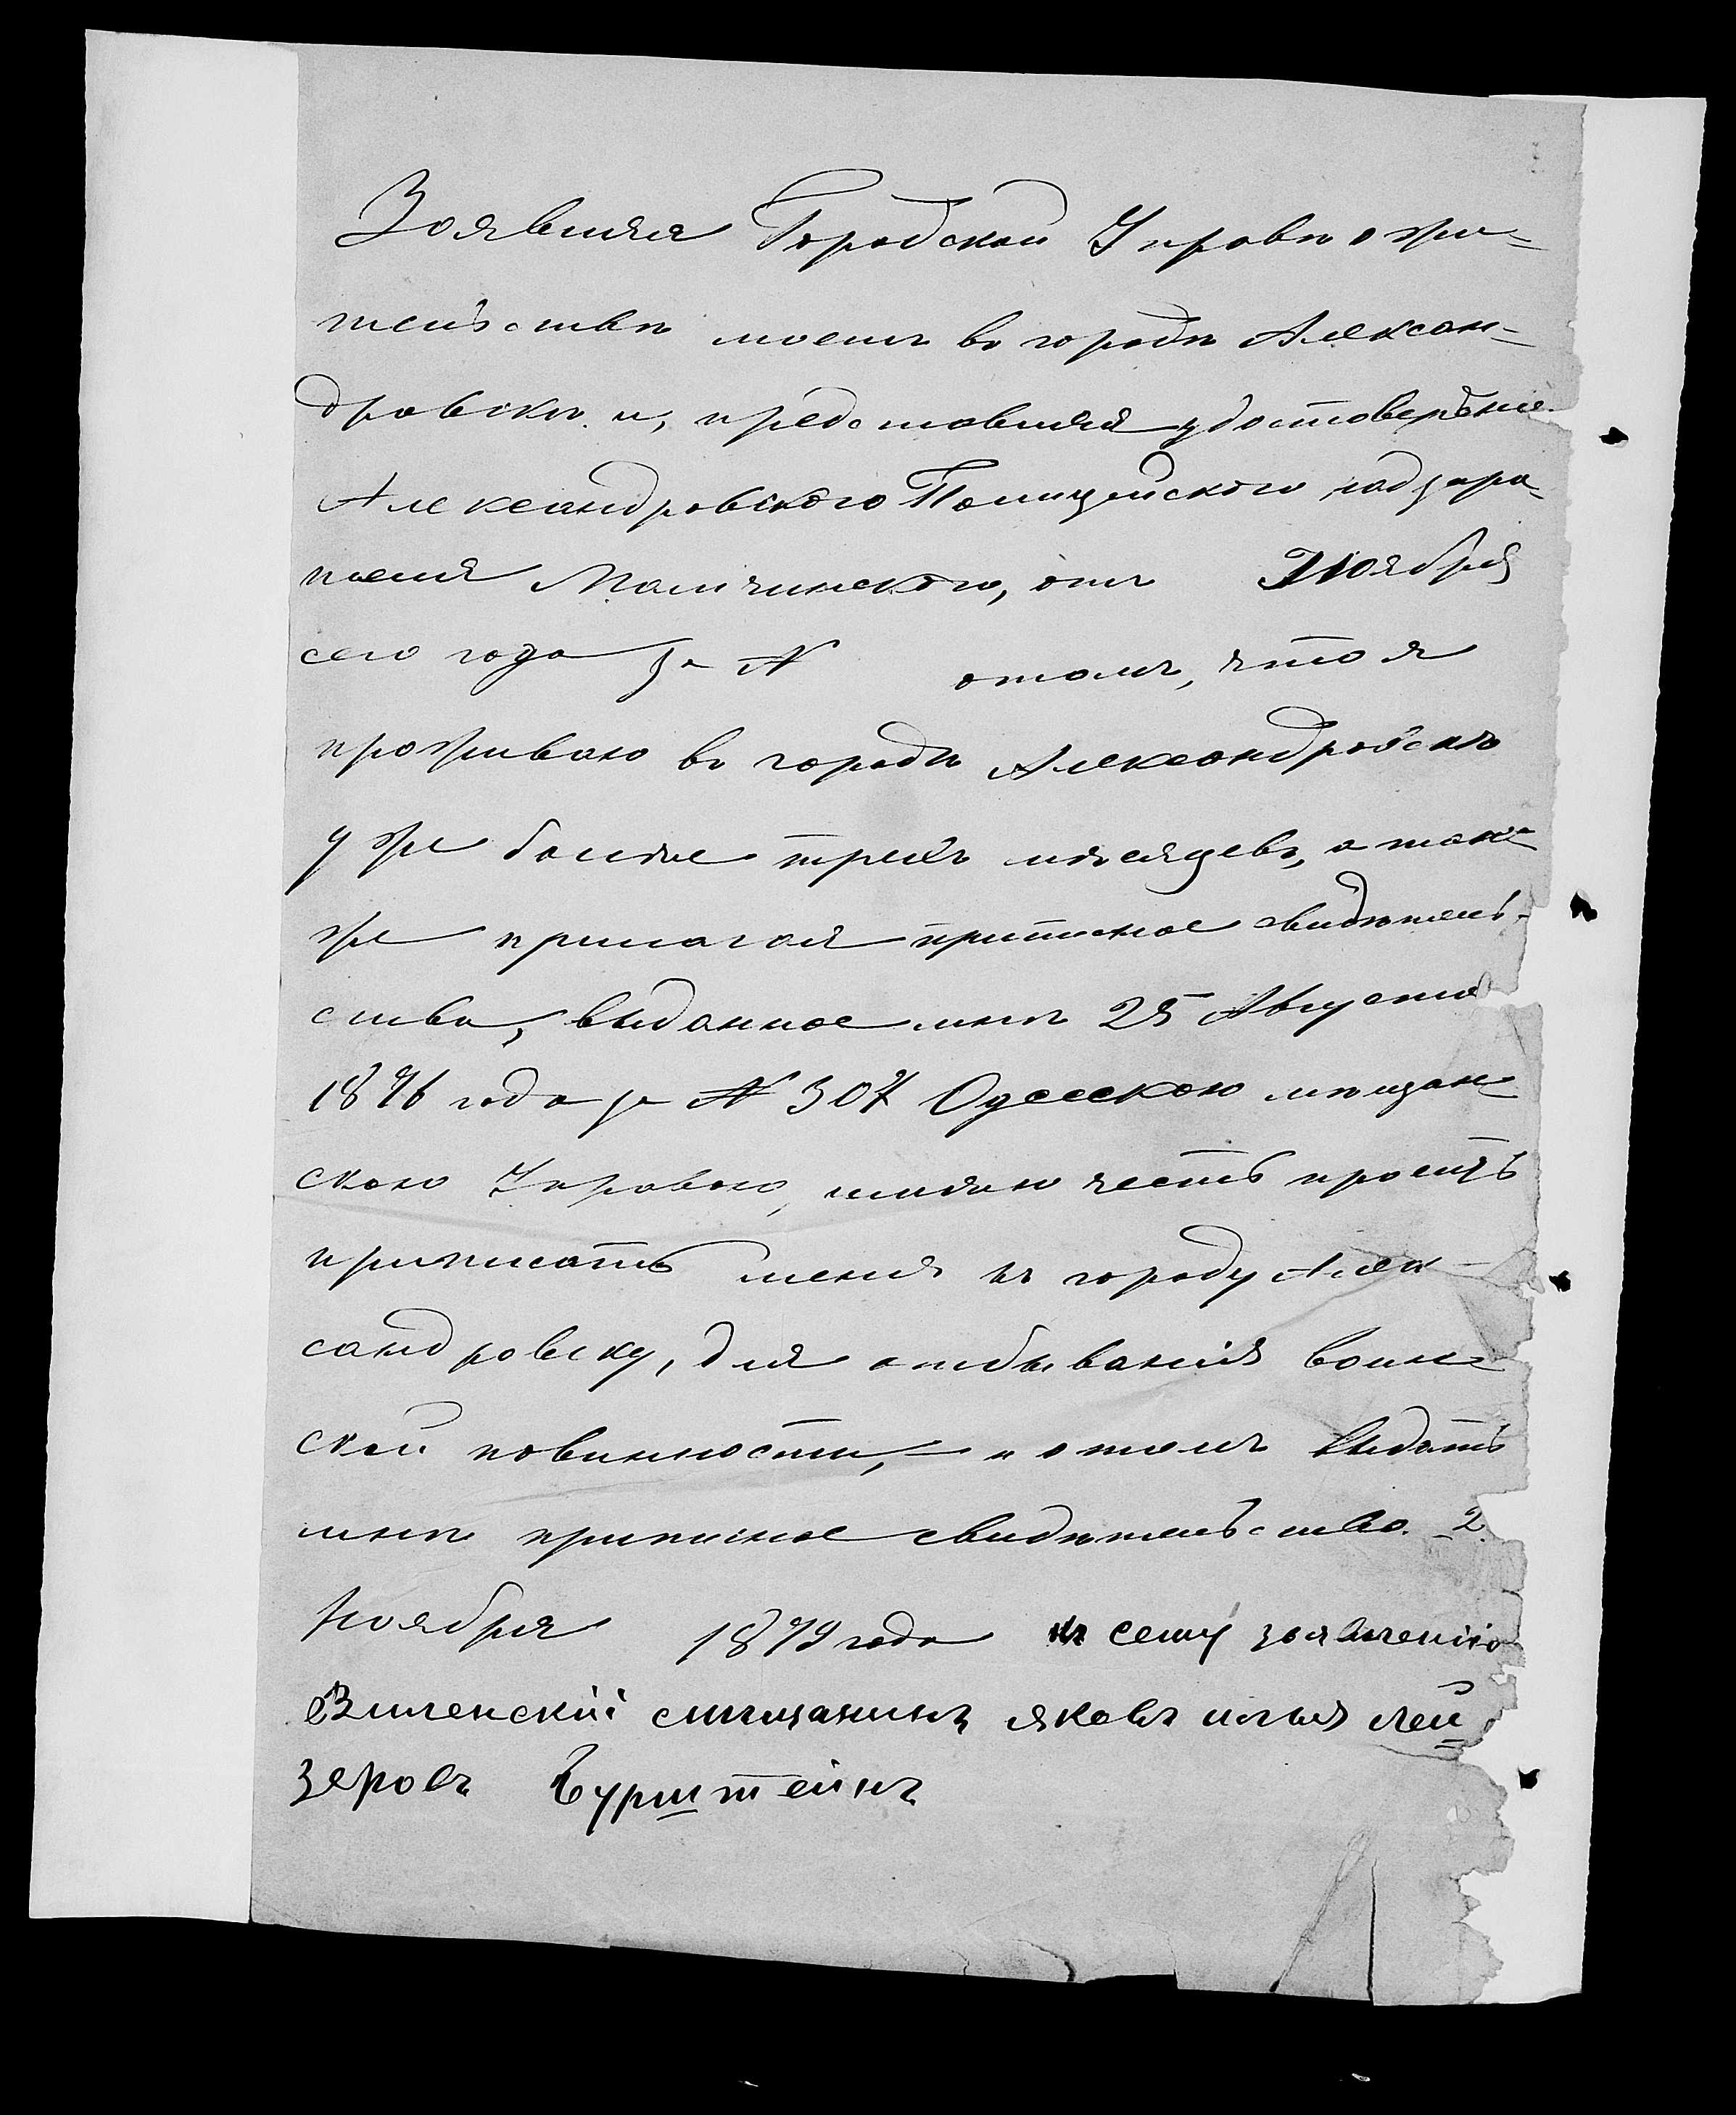 Заявляя Городской Управѣ о жи=
тельствѣ моемъ въ городѣ Алексан=
дровскѣ и, представляя удостовѣреніе
Александровского Полицейского надзира-
теля Мальчинского, отъ Ноября
сего года за № о томъ, что я
проживаю въ городѣ Александровскѣ
уже болѣе трехъ мѣсяцевъ, а так-
же прилагая приписное свидѣтель-
ство, выданное мнѣ 25 Августа
1876 года за № 307 Одесскою мѣщан
скою Управою, имѣю честь просить
приписать меня къ городу Алек-
сандровску, для отбыванія воин-
ской повинности, — и о томъ выдать
мнѣ приписное свидѣтельство. 2
Ноября 1879 года къ сему заявленію
Виленскій смещанинъ яковъ илья лей=
зеровъ Бурштейнъ